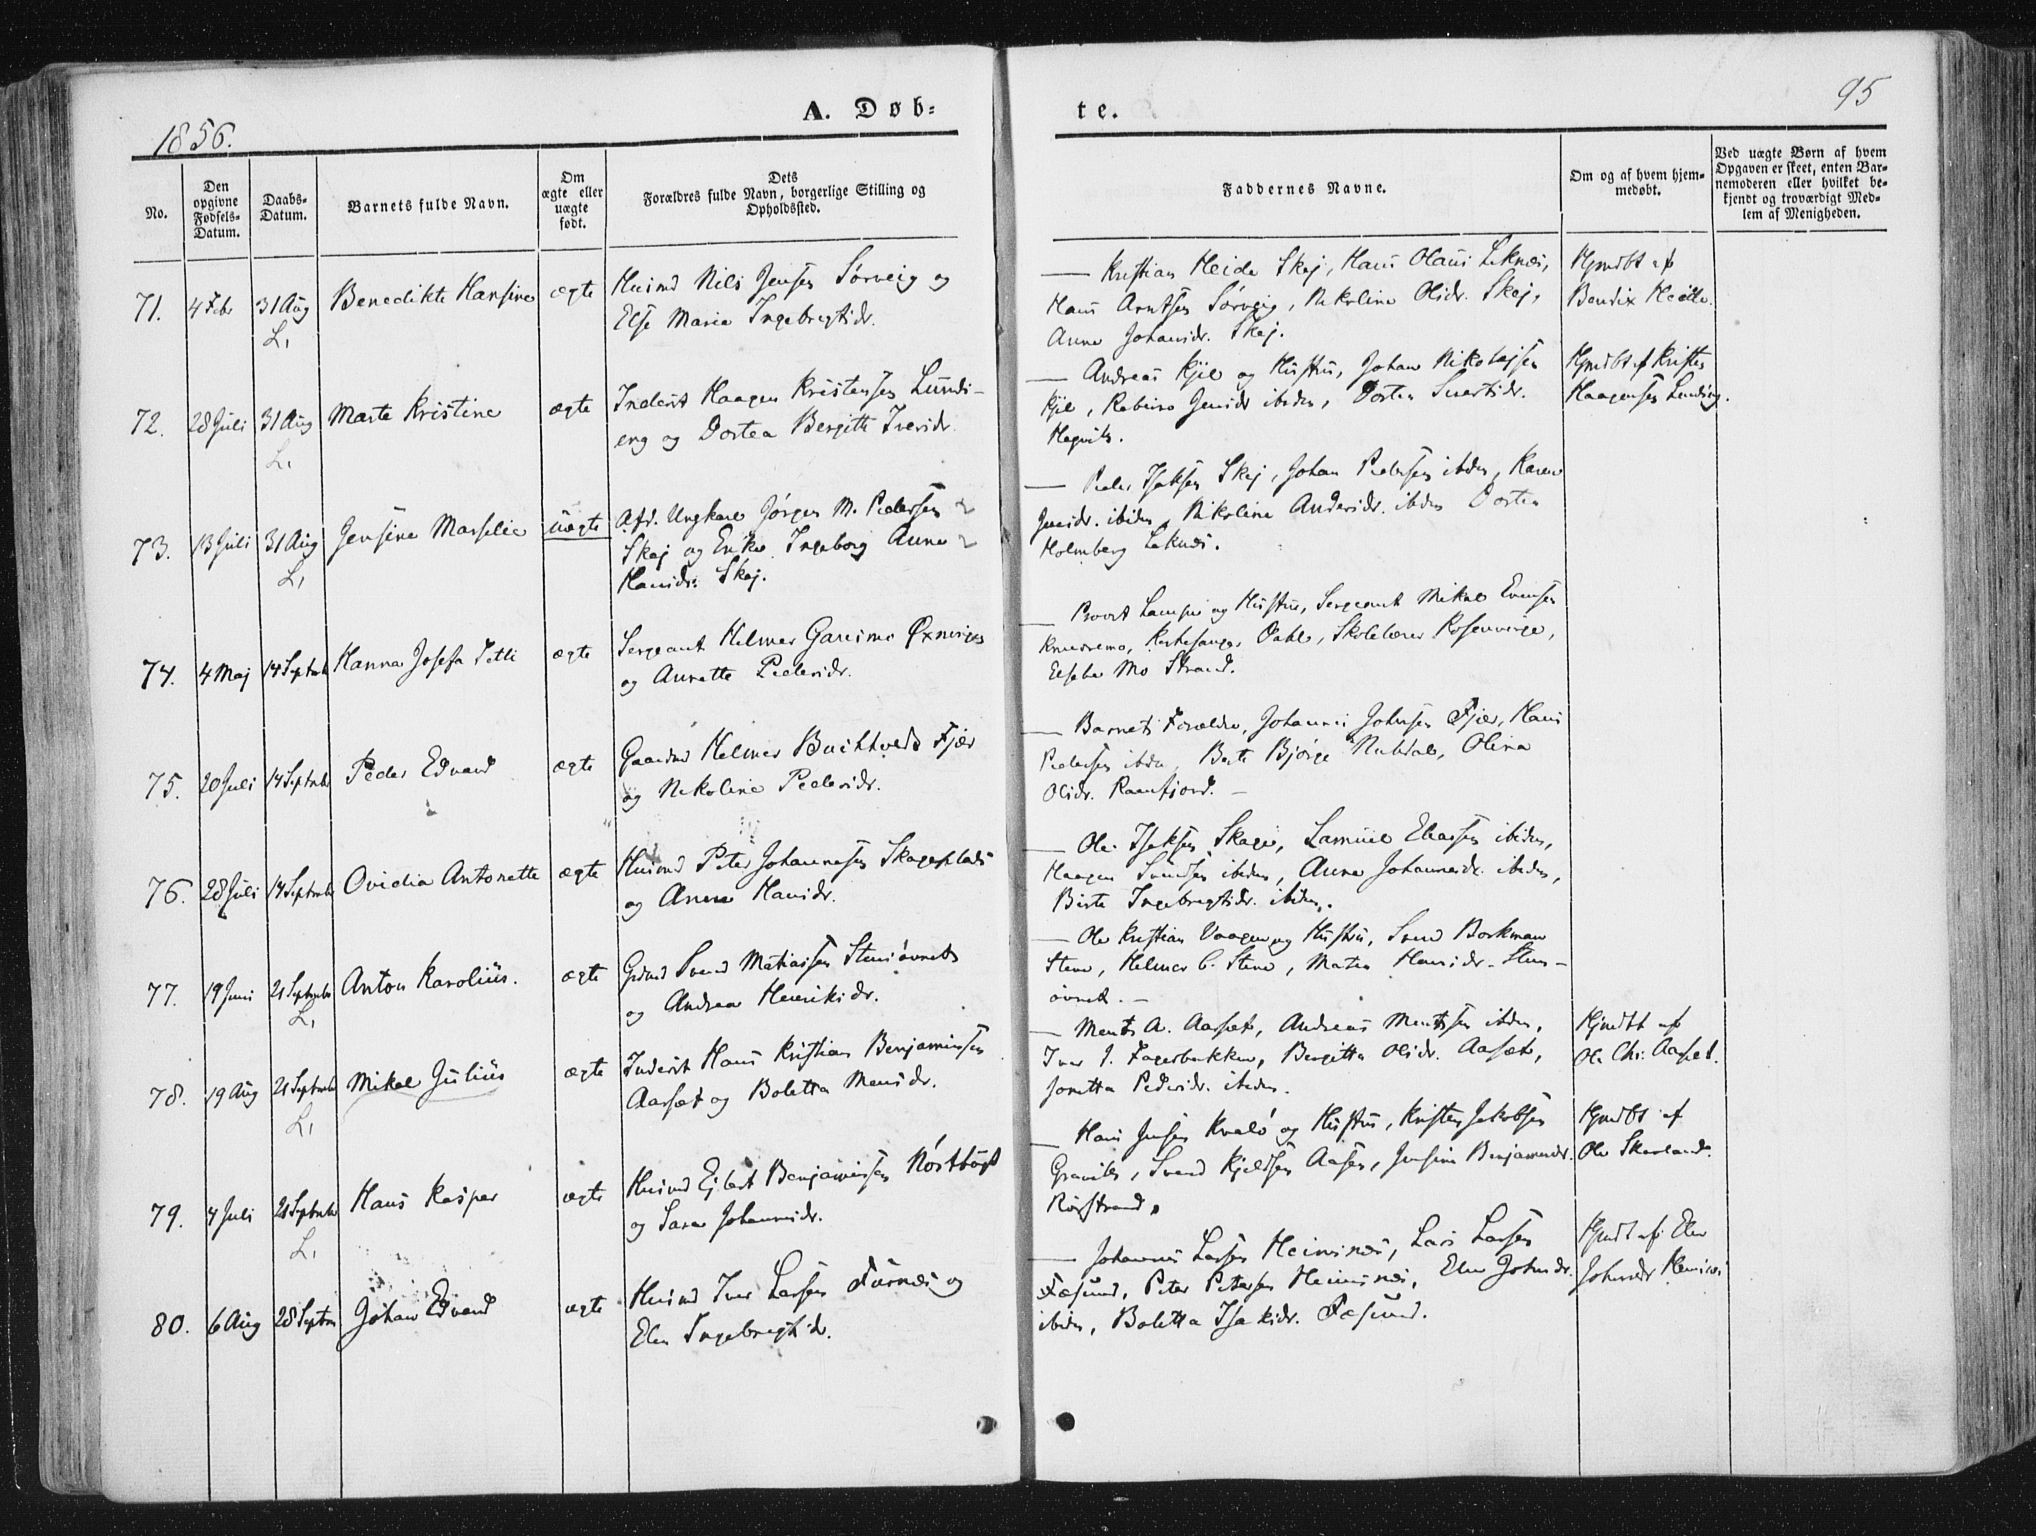 1856.
A. Døb=
te.
95
No.
Den opgivne Fødsels-Datum.
Daabs-Datum.
Barnets fulde Navn.
Om ægte eller uægte født.
Dets Forældres fulde Navn, borgerlige Stilling og Opholdssted.
Faddernes Navne.
Om og af hvem hjemmedøbt.
Ved uægte Børn af hvem Opgaven er skeet, enten Barnemoderen eller hvilket bekjendt og troværdigt Medlem af Menigheden.
71. 4 Febr 31 Aug Benedikte Hansine ægte Husmd Nils Jensen Sørveig og
L,
Else Marie Ingebregtsdr.
— Kristian Heide Skej, Hans Olaus Leknes,
Hans Arntsen Sørveig, Nikoline Olsdr. Skej,
Anne Johansdr. Skej.
Hjmdbt af
Bendix Heide.
72. 28 Juli 31 Aug Marte Kristine ægte Inderst Haagen Kristensen Lunds-
L,
eng og Dortea Bergitte Iversdr.
— Andreas Kjil og Hustru, Johan Nikolajsen
Kjil, Jensdr ibiden, Dortea
Hjmdbt af Kristen
Haagensen Lundseng.
73. 13 Juli 31 Aug Jensine Marselie uægte Afd. Ungkarl Jørgen M. Pedersen
L,
Skej og Enke Ingeborg Anna
Hansdr. Skej.
— Peder Isaksen Skej, Johan Pedersen ibiden, Karen
Jensdr. ibiden, Nikoline Andersdr. ibiden Dortea
Holmberg Leknes.
74. 4 Maj 14 Septembr Hanna Josefa Jetti ægte Sergeant Helmer Øxninges
og Annette Pedersdr.
— Provst og Hustru, Sergeant Mikal Evensen
Kirkesanger Dahl, Skolelærer Rosenvinge,
Mo Strand.
75. 20 Juli 14 Septembr Peder Edvard ægte Gaardmd Helmer Buchtveds Fjær
og Nikoline Pedersdr.
— Barnets Forældre, Johannes Johnsen Fjær, Hans
Pedersen ibden, Berte Bjørge, Olina
Olsdr. Ramfjord. —
76. 28 Juli 14 Septembr Ovidia Antonette ægte Husmd Peter Johannesen Skageplads
og Anne Hansdr.
— Ole Isaksen Skage, Samuel Eliassen ibiden,
Haagen ibiden, Anne Johannesdr. ibiden,
Berte Ingebregtsdr. ibiden.
77. 19 Juni 21 Septembr Anton Karolius. ægte Grdmd Svend Matiassen Stensøvnet
L,
og Andrea Henriksdr.
— Ole Kristian Vaagen og Hustru, Svend Borkman
Stene, Helmer C. Stene, Matea Hansdr. Stens-
øvnet. —
78. 19 Aug 21 Septembr Mikal Julius ægte Inderst Hans Kristian Benjaminsen
L,
Aarset og Boletta Mensdr.
— Ments A. Aarset, Andreas Mentsen ibden,
Iver J. Fagerbakken, Bergitta Olsdr. Aarset,
Joretta Pedersdr. ibiden.
Hjmdbt af
Ole Chr. Aarset.
79. 7 Juli 21 Septembr Hans Kasper ægte Husmd Ejlert Benjaminsen
L,
og Sara Johannesdr.
— Hans Jensen Kvalø og Hustru, Kristen Jakobsen
Svend Kjeldsen Aasen, Jensine Benjaminsdr.
Rørstrand.
Hjmdbt af
Ole Skarland.
80. 6 Aug 28 Septbr Johan Edvard ægte Husmd Iver Larsen Furnes og
Elen Ingebregtsdr.
— Johannes Larsen Heimsnes, Lars Larsen
Fæsund, Peter Petersen Heimsnes, Elen Johnsdr.
ibiden, Boletta Isaksdr. Fæsund.
Hjmdt af Elen
Johnsdr Hemsnes